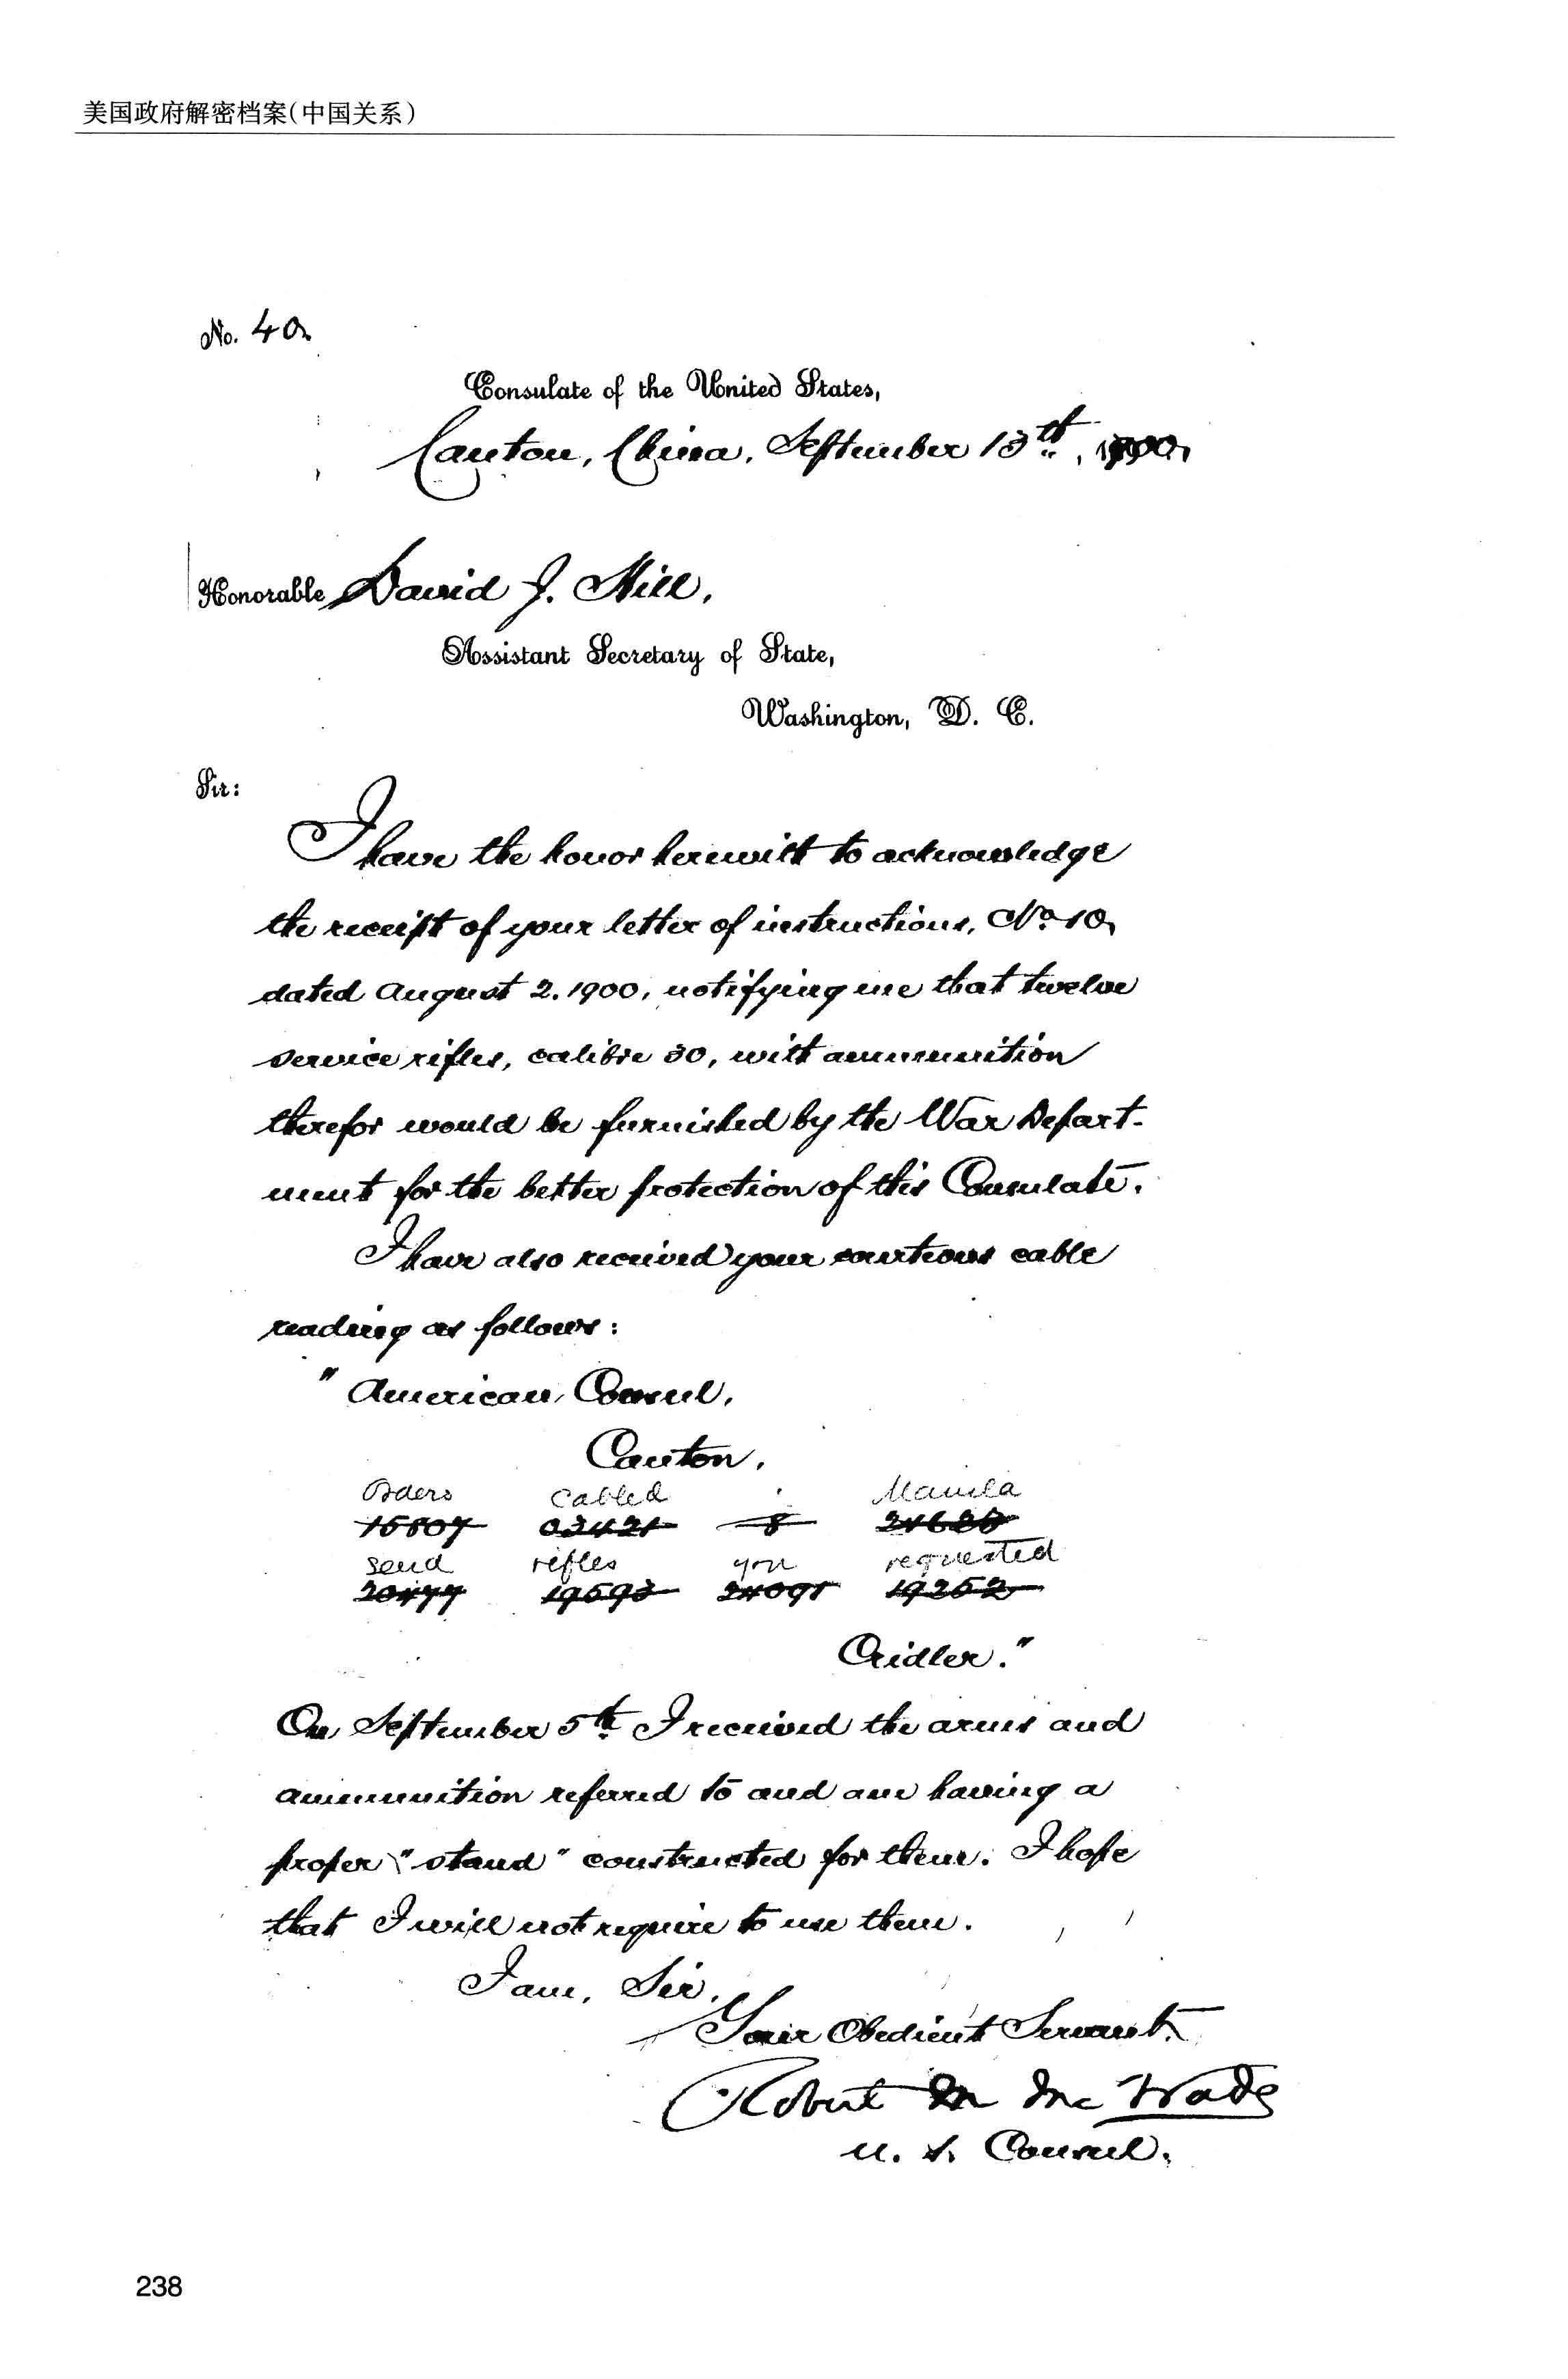 美国政府解密档案(中国关系)
No. 40.
Consulate of the United States,
Canton, China, September 13th, 1900.
Honorable David J. Hill,
Assistant Secretary of State,
Washington, D. C.
Sir:
I have the honor herewith to acknowledge
the receipt of your letter of instructions, No. 10,
dated August 2. 1900, notifying me that twelve
service rifles, calibre 30, with ammunition
therefor would be furnished by the War Depart-
ment for the better protection of this Consulate.
I have also received your courteous cable
reading as follows:
"American Consul,
Canton.
Orders cabled Manila
15807 03421 8
send rifles you requested
20477 19593 19252
Cridler."
On September 5th I received the arms and
ammunition referred to and am having a
proper "stand" constructed for them. I hope
that I will not require to use them.
I am, Sir,
Your Obedient Servant,
Robert M McWade
U. S. Consul.
238